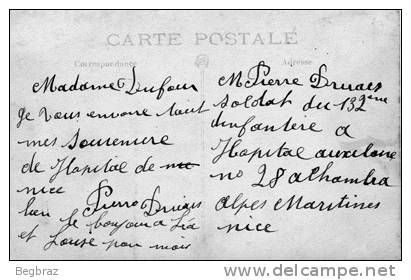 CARTE POSTALE
Correspondance
Adresse
Madame Dufour
Je vous envoire tout
mes souvenire
de Hopital de
nice
Pierre Druais
bien le bonjour a Léa
et Louise pour moi
M Pierre Druais
soldat du 132ème
dinfanterie a
Hopital auxiliaire
no 28 alhambra
alpes Maritimes
nice
Begbraz
delcampe.net